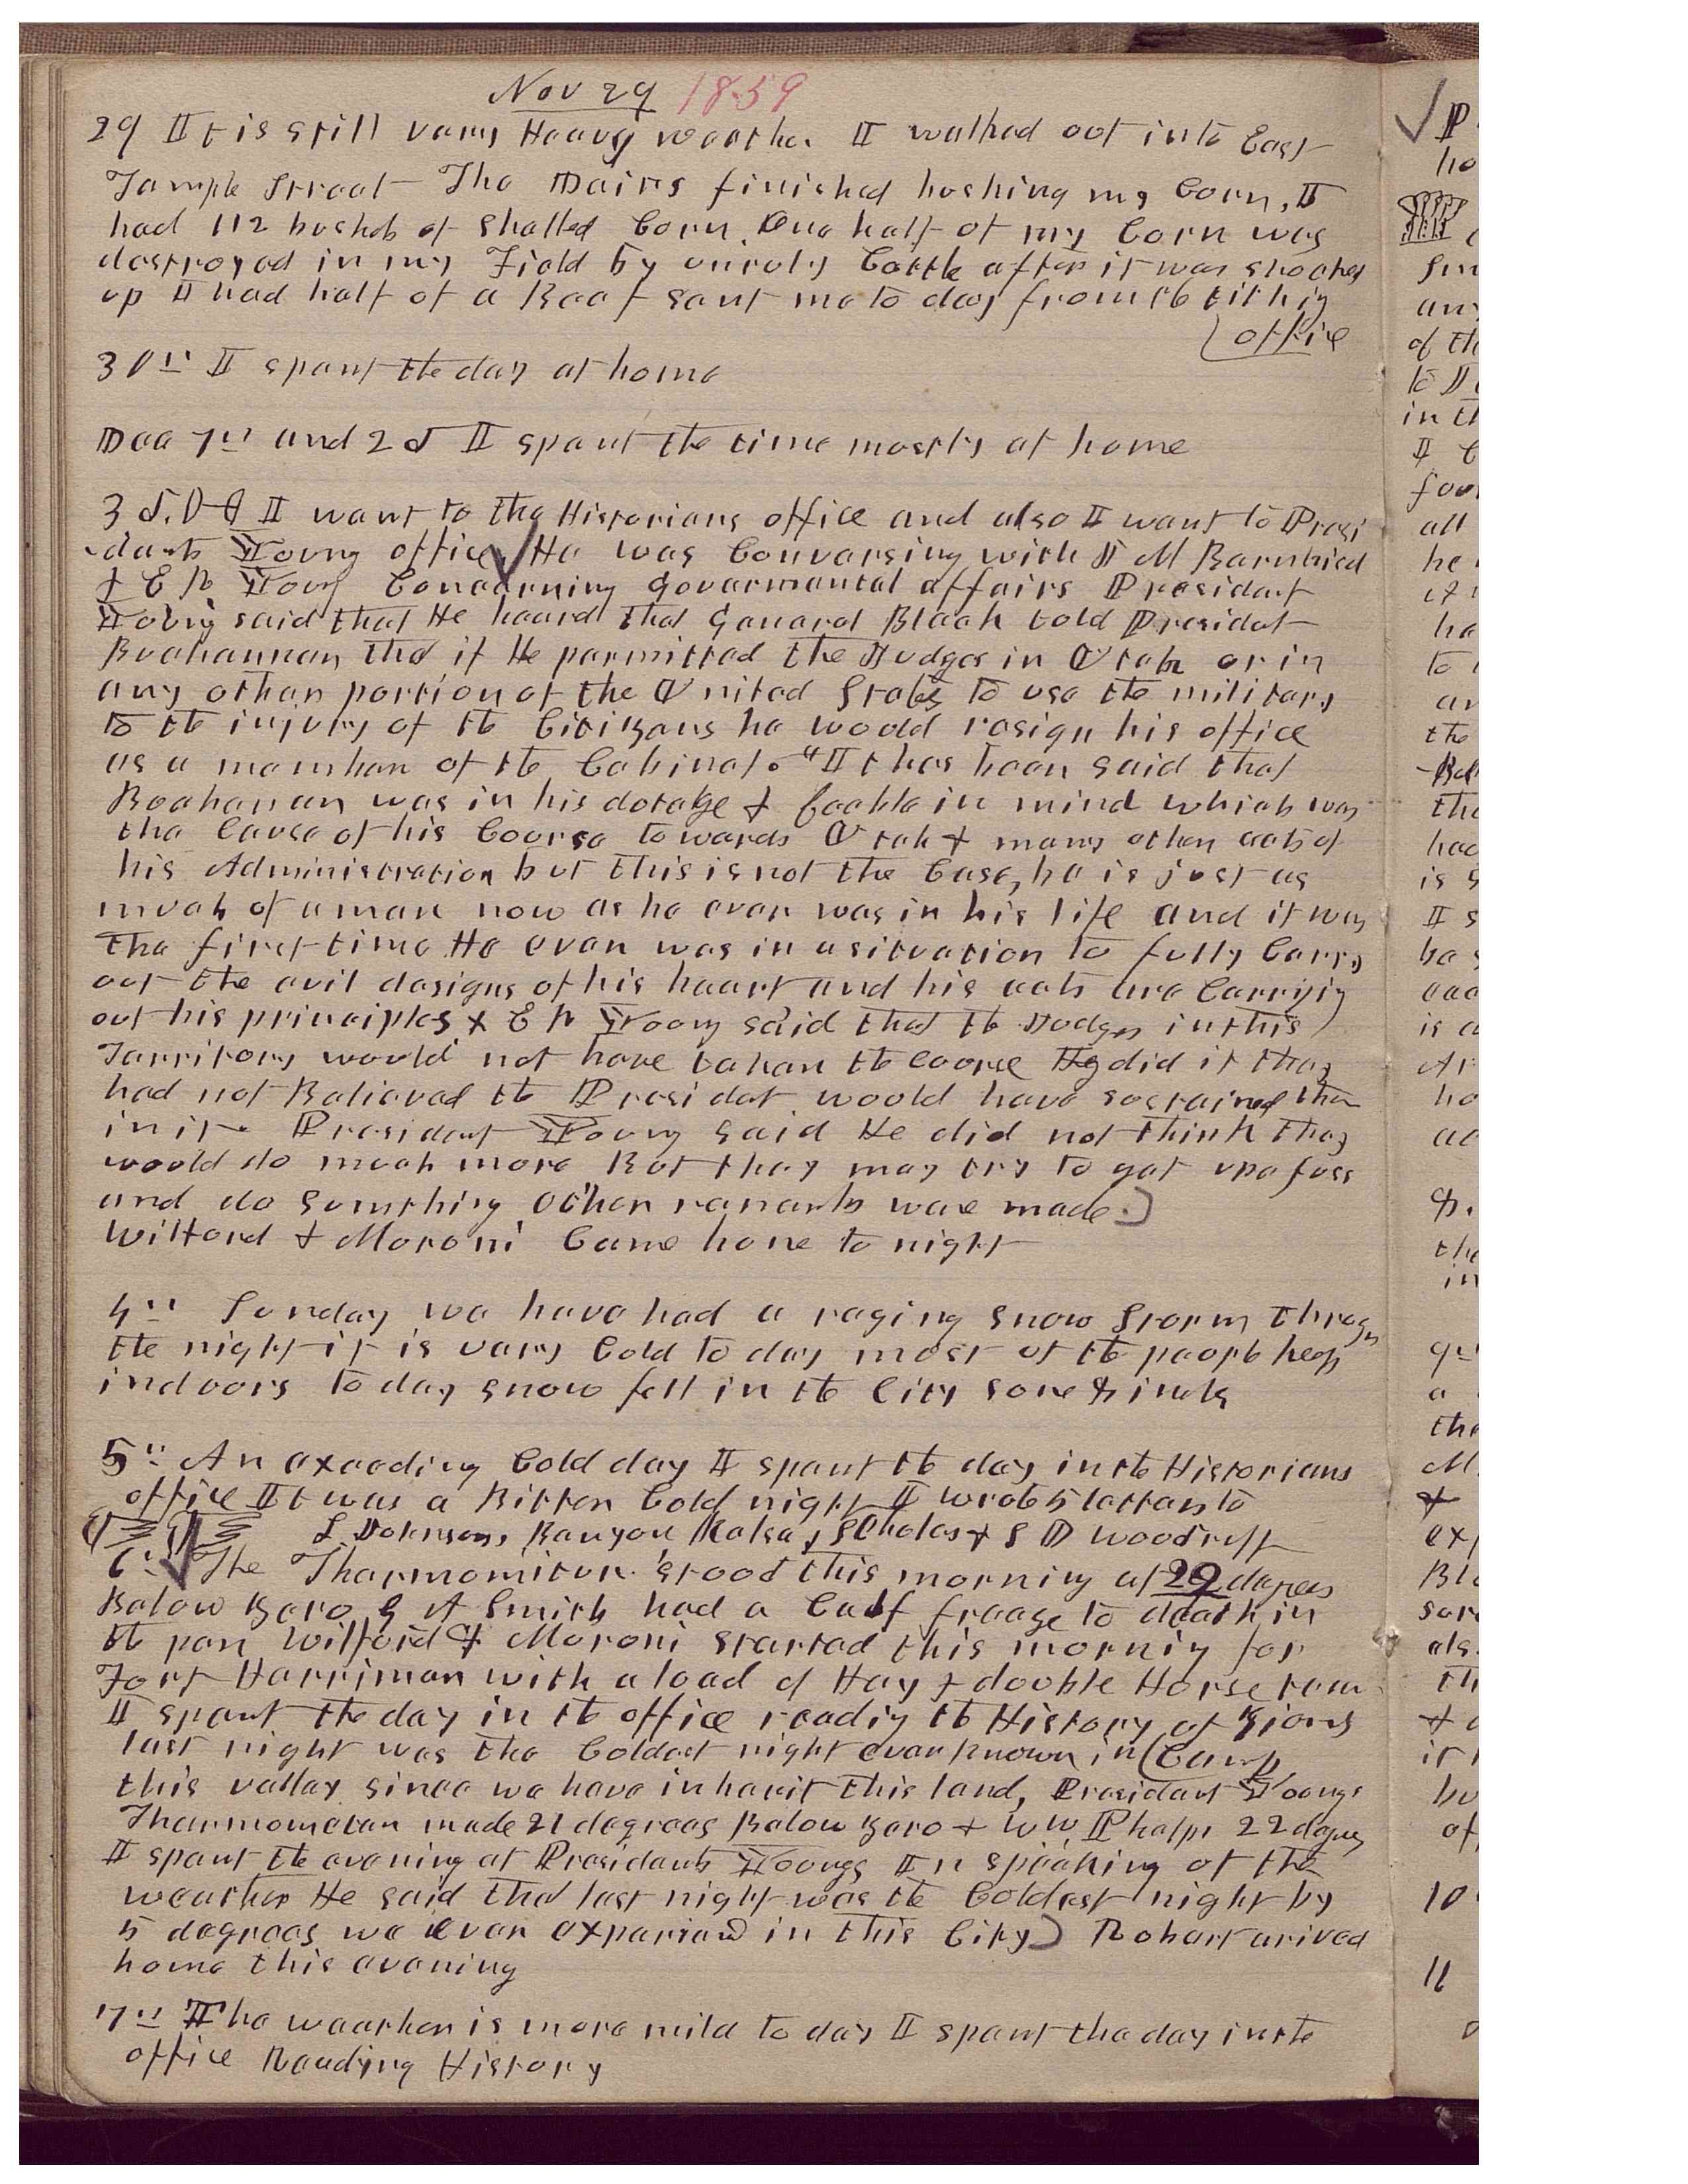 Nov 29 1859
29 It is still vary Heavy weather I walked out into East
Temple Street The Dairs finished husking my Corn, I
had 112 bushels of Shelled Corn. One half of my Corn was
destroyed in my Field by unruly Cattle after it was shocked
up I had half of a Beef sent me to day from the tithing
office
30th I spent the day at home
Dec 1st and 2d I spent the time mostly at home
3d. I went to the Historians office and also I went to Presi
-dents Young office He was Conversing with J M Bernhisel
& E R Young Concerning Govermental affairs President
Young said that He heard that General Black told President
Buchannan that if He permitted the Judges in Utah or in
any other portion of the United States to use the military
to the injury of the Citizens he would resign his office
as a member of the Cabinet. "It has been said that
Buchanan was in his dotage & feeble in mind which was
the Cause of his Course towards Utah & many other acts of
his Administration but this is not the Case, he is just as
much of a man now as he ever was in his life and it was
the first time He ever was in a situation to fully Carry
out the evil designs of his heart and his acts are Carrying
out his principles & E R Young said that the Judges in this
Territory would not have taken the course they did if they
had not Believed the President would have sustained them
in it. President Young said He did not think they
would do much more But they may try to get up a fuss
and do sumthing other remarks ware made.)
Wilford & Moroni Came home to night
4th Sunday we have had a raging snow storm through
the night it is vary Cold to day most of the people keep
indoors to day snow fell in the City some 8 inches
5th An exceeding Cold day I spent the day in the Historians
office It was a Bitter Cold night I wrote 5 letters to
L Johnson, Kenyon, Kelsey, Scholes & S D Woodruff
6th The Tharmomiter stood this morning at 22 degrees
Below Zero G A Smith had a Calf freeze to death in
the pen Wilford & Moroni started this morning for
Fort Harriman with a load of Hay & double Horse team
I spent the day in the office reading the History of Zions
Camp
last night was the Coldest night ever known in
this valley since we have inherit this land, President Youngs
Tharmometer made 21 degrees Below Zero & W W Phelps 22 degrees
I spent the evening at Presidents Youngs In speaking of the
weather He said that last night was the Coldest night by
5 degrees we ever experianced in this City) Robert arived
home this evening
7th The weather is more mild to day I spent the day in the
office Reading History